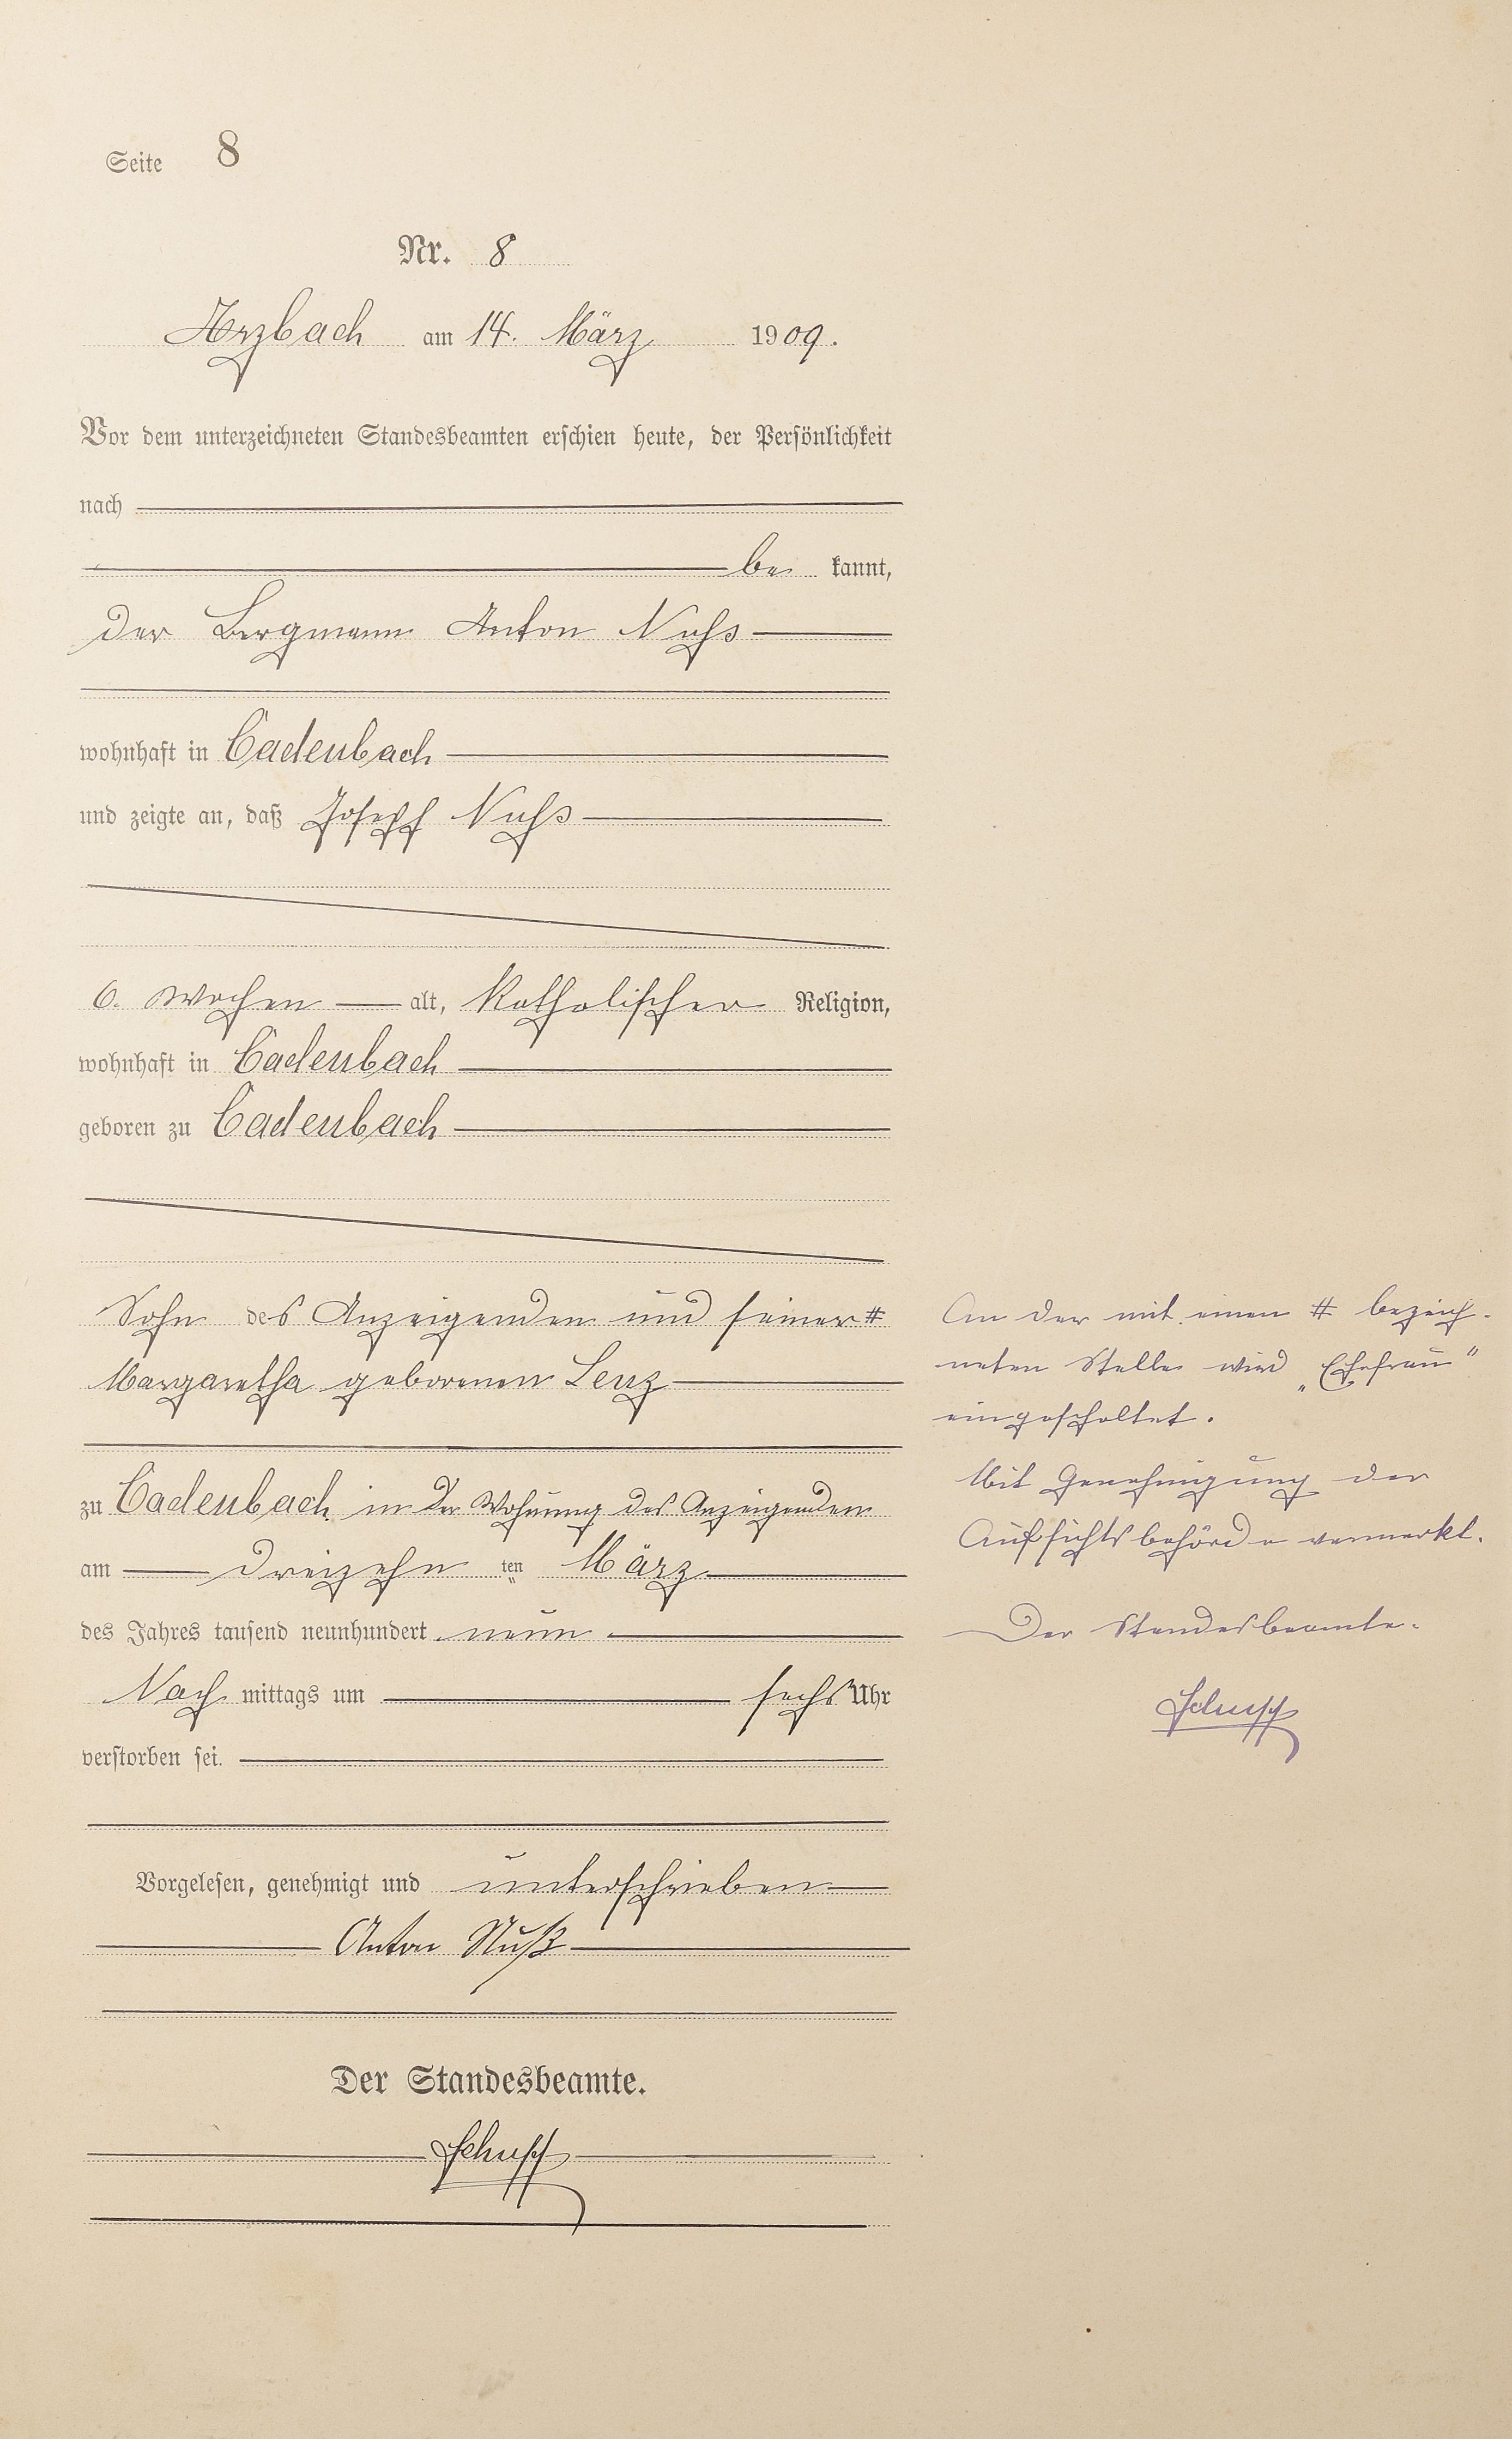 Seite 8
Nr. 8
Arzbach am 14. März 1909.
Vor dem unterzeichneten Standesbeamten erschien heute, der Persönlichkeit
nach
be kannt,
der Bergmann Anton Nuß
wohnhaft in Cadenbach
und zeigte an, daß Joseph Nuß
6. Wochen alt, katholischer Religion,
wohnhaft in Cadenbach
geboren zu Cadenbach
Sohn des Anzeigenden und seiner #
Margaretha geborenen Lenz
zu Cadenbach in der Wohnung des Anzeigenden
am dreizehn ten März
des Jahres tausend neunhundert neun
Nach mittags um sechs Uhr
verstorben sei.
Vorgelesen, genehmigt und unterschrieben
Anton Nuß
Der Standesbeamte.
Schupp
An der mit einen # bezeich-
neten Stelle wird „Ehefrau"
eingeschaltet.
Mit Genehmigung der
Aufsichtsbehörde vermerkt.
Der Standesbeamte.
Schupp